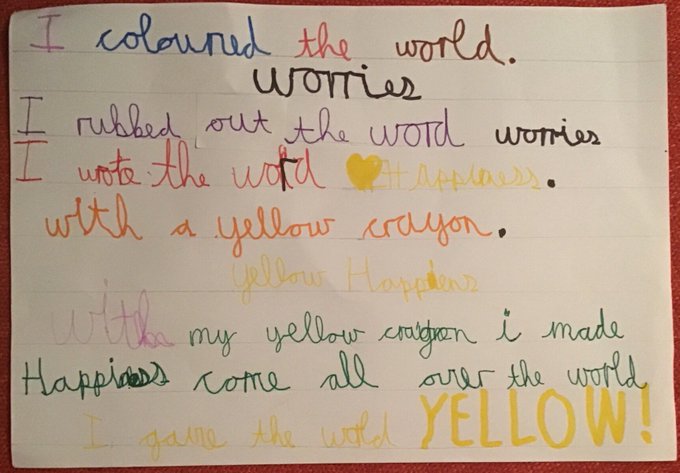 I coloured the world.
worries
I rubbed out the word worries
I wrote the word Happiness.
with a yellow crayon.
yellow Happiens
with my yellow crayon i made
Happiness come all over the world
I gave the wold YELLOW!